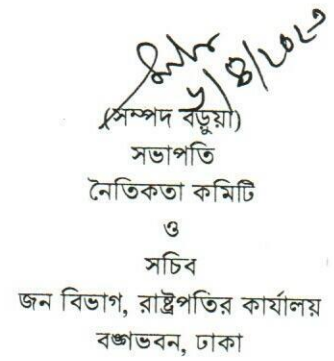 (সম্পদ বড়ুয়া)
সভাপতি
নৈতিকতা কমিটি
ও
সচিব
জন বিভাগ, রাষ্ট্রপতির কার্যালয়
বঙ্গভবন, ঢাকা